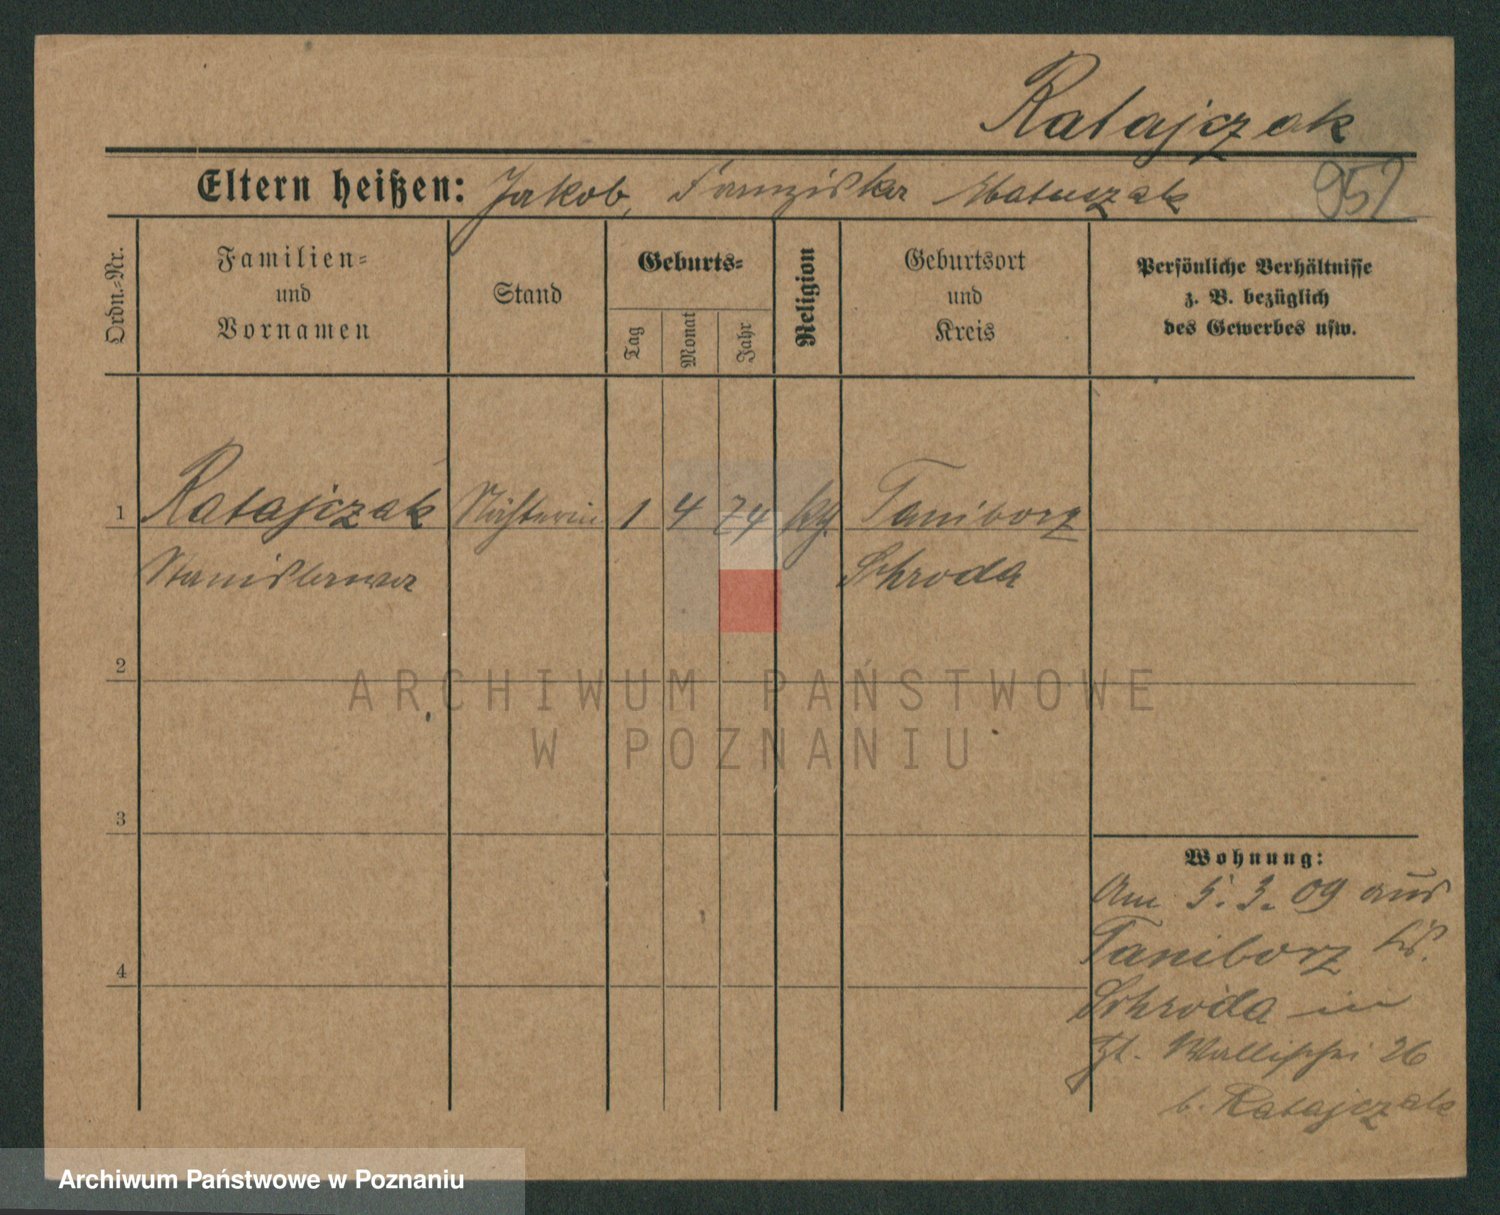 Ratajczak
Eltern heißen: Jakob, Franziska Matuszak
952
Ordn.-Nr.
Familien-
und
Vornamen
Stand
Geburts-
Tag
Monat
Jahr
Religion
Geburtsort
und
Kreis
Persönliche Verhältnisse
z. B. bezüglich
des Gewerbes usw.
1 Ratajczak Näherin 1 4 74 kth. Taniborz
Stanislawa Schroda
2
3
4
Wohnung:
Am 5.3.09 aus
Taniborz Kr.
Schroda in
Wallischei 26
b. Ratajczak
ARCHIWUM PAŃSTWOWE
W POZNANIU
Archiwum Państwowe w Poznaniu